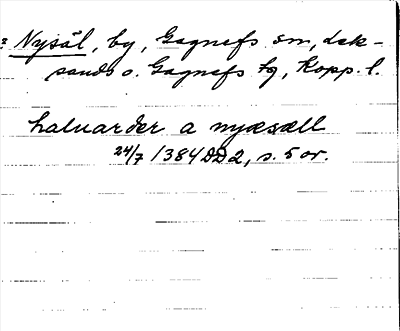 : Nysäl, by, Gagnefs sn, Lek-
sands o. Gagnefs tg, Kopp. l.
haluarder a nyæsæll
24/7 1384 DD 2, s. 5 or.